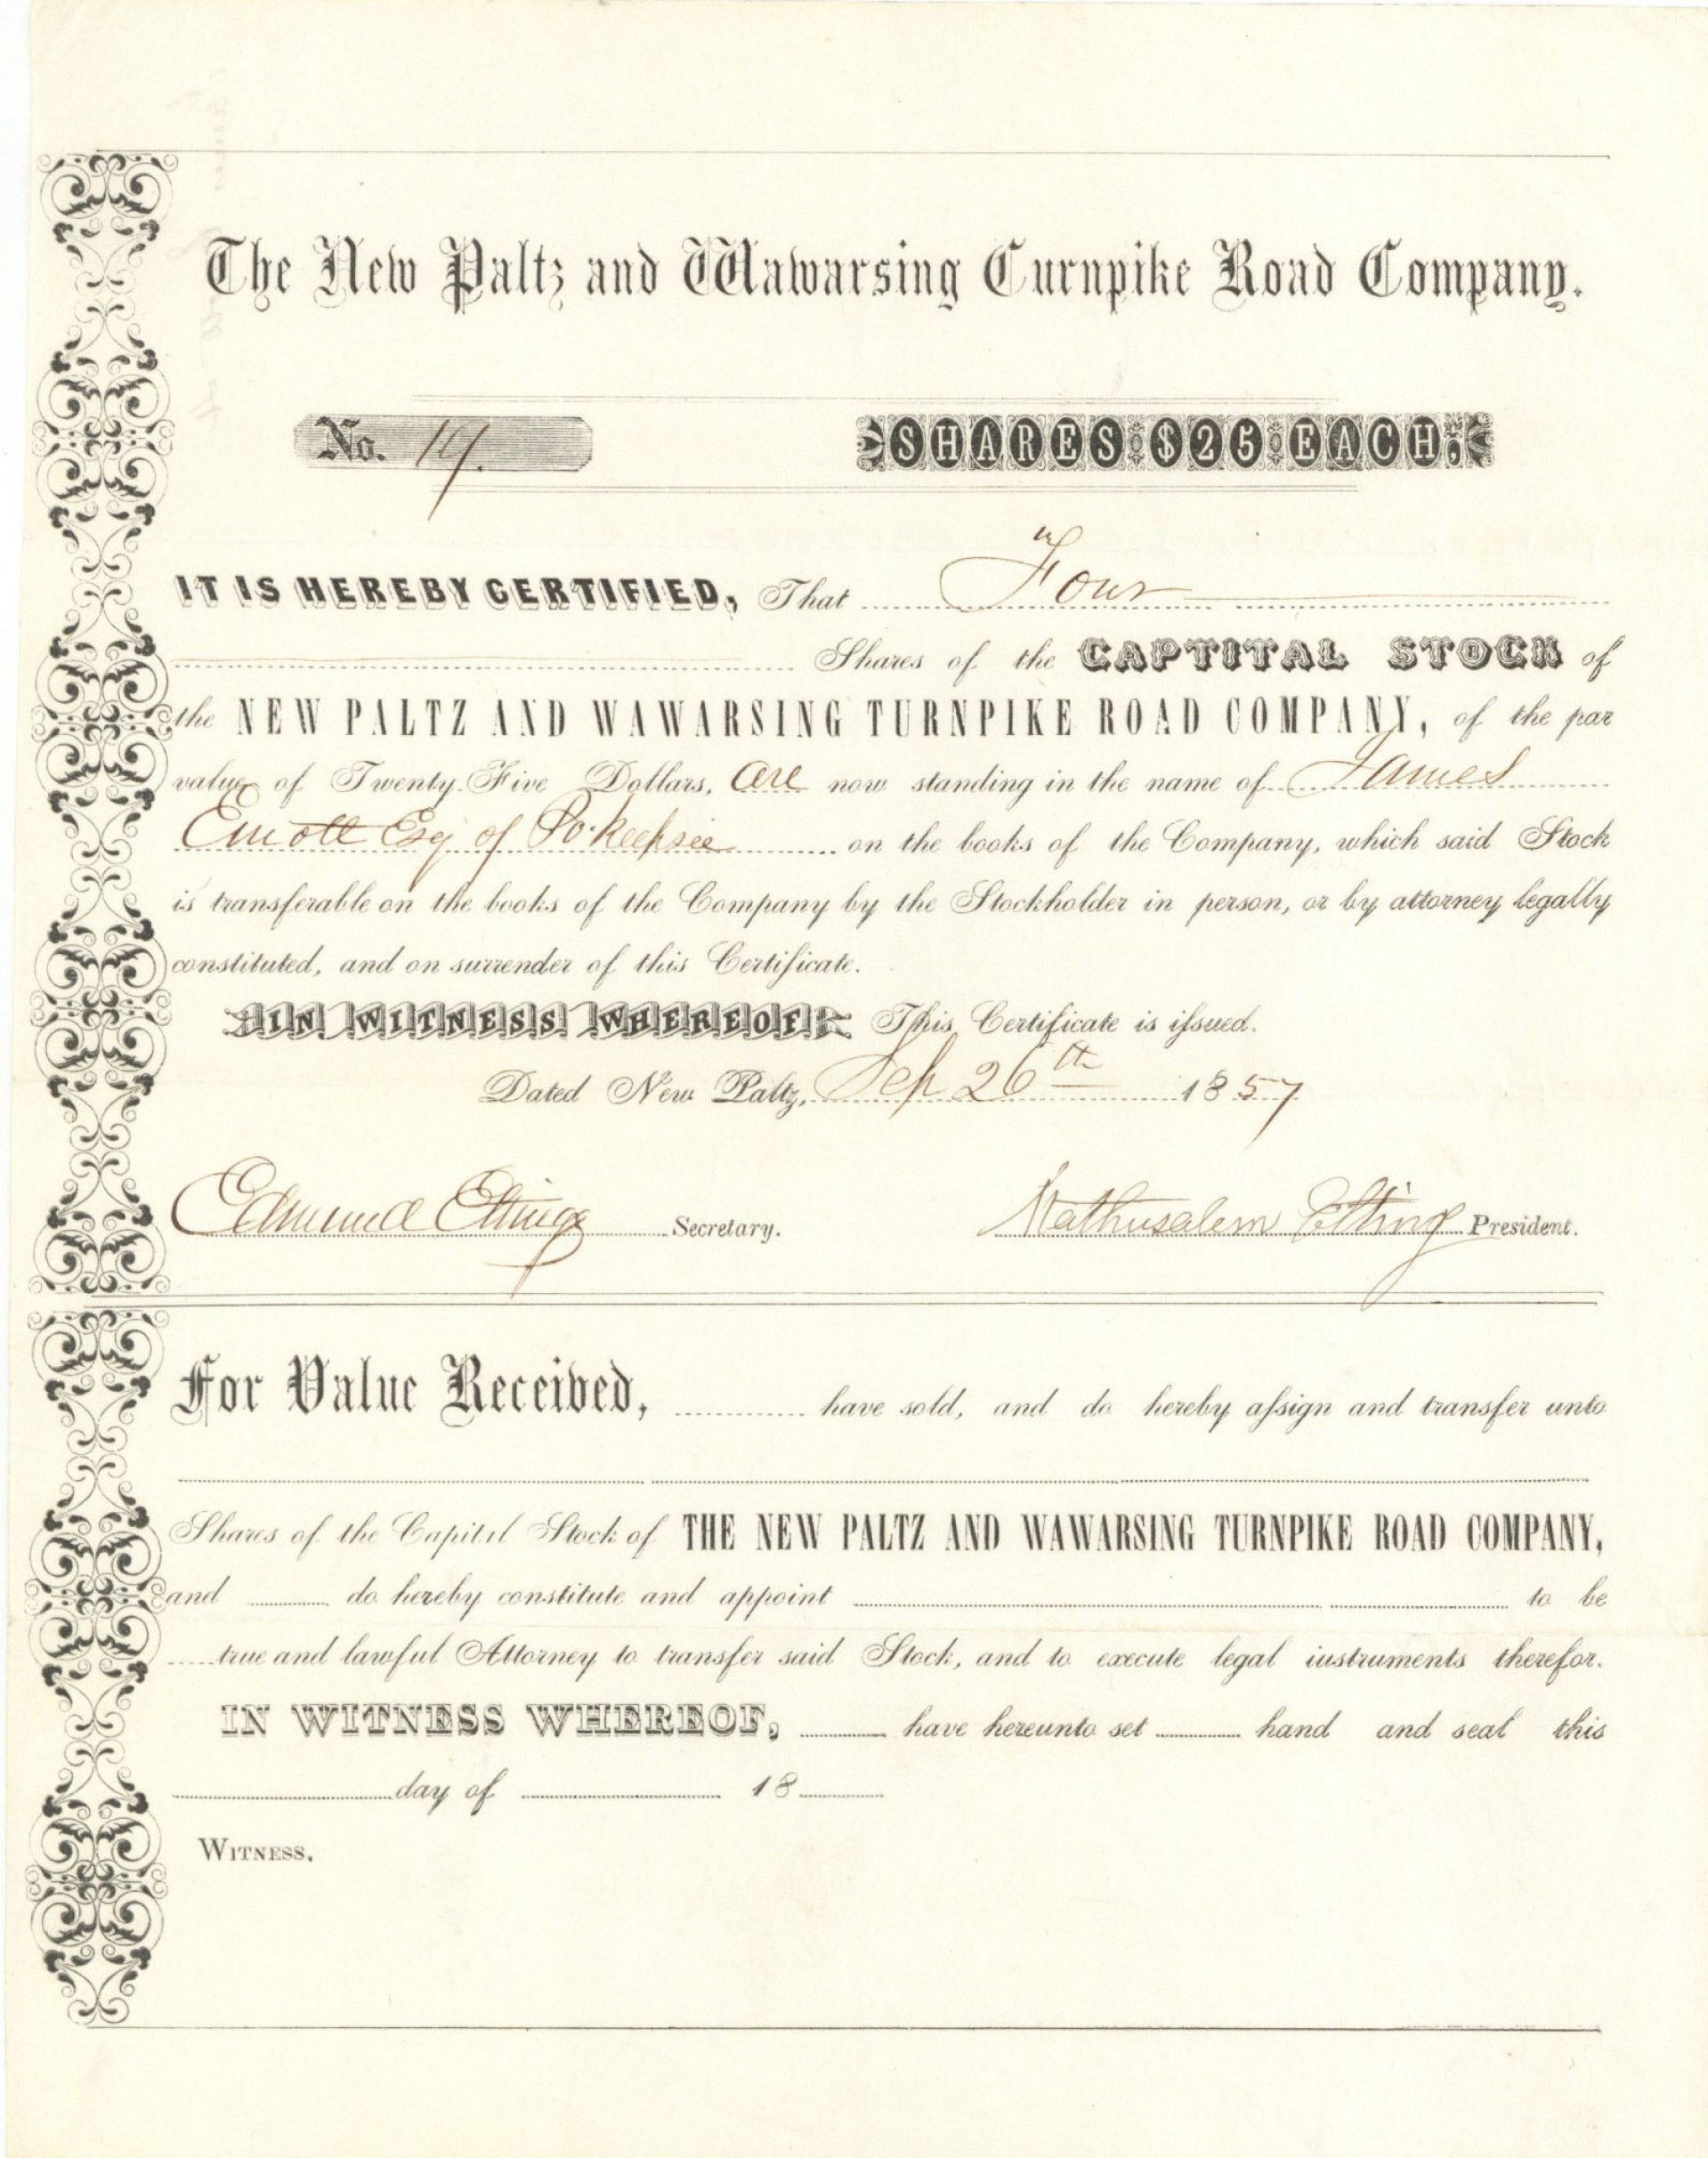 The New Paltz and Wawarsing Turnpike Road Company.
No. 19.
SHARES $25 EACH
IT IS HEREBY CERTIFIED, That Four
Shares of the CAPTITAL STOCK of
the NEW PALTZ AND WAWARSING TURNPIKE ROAD COMPANY, of the par
value of Twenty Five Dollars, are now standing in the name of James
Emott Esq of Po'keepsie on the books of the Company, which said Stock
is transferable on the books of the Company by the Stockholder in person, or by attorney legally
constituted, and on surrender of this Certificate.
IN WITNESS WHEREOF This Certificate is issued.
Dated New Paltz, Sep 26th 1857
Edmund Eltinge Secretary. Mathusalem Elting President.
For Value Received, have sold, and do hereby assign and transfer unto
Shares of the Capital Stock of THE NEW PALTZ AND WAWARSING TURNPIKE ROAD COMPANY,
and do hereby constitute and appoint to be
true and lawful Attorney to transfer said Stock, and to execute legal instruments therefor.
IN WITNESS WHEREOF, have hereunto set hand and seal this
day of 18
WITNESS.